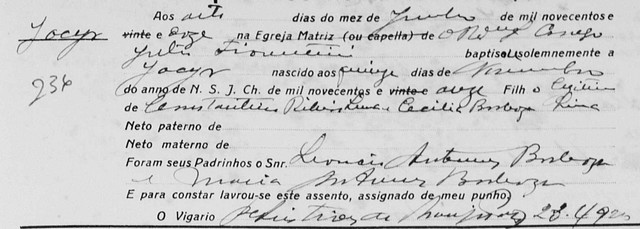 Aos oito dias do mez de Junho de mil novecentos e
Jocyr vinte e doze na Egreja Matriz (ou capella) de O Revd Conego
Julio baptisou solemnemente a
Jocyr nascido aos quinze dias de Novembro
236 do anno de N. S. J. Ch. de mil novecentos e vinte e onze Filho legitimo
de Constantino Ribeiro Lima e Cecilia Barboza Lima
Neto paterno de
Neto materno de
Foram seus Padrinhos o Snr. Leoncio Antunes Barboza
e Maria Antunes Barboza
E para constar lavrou-se este assento, assignado de meu punho
O Vigario